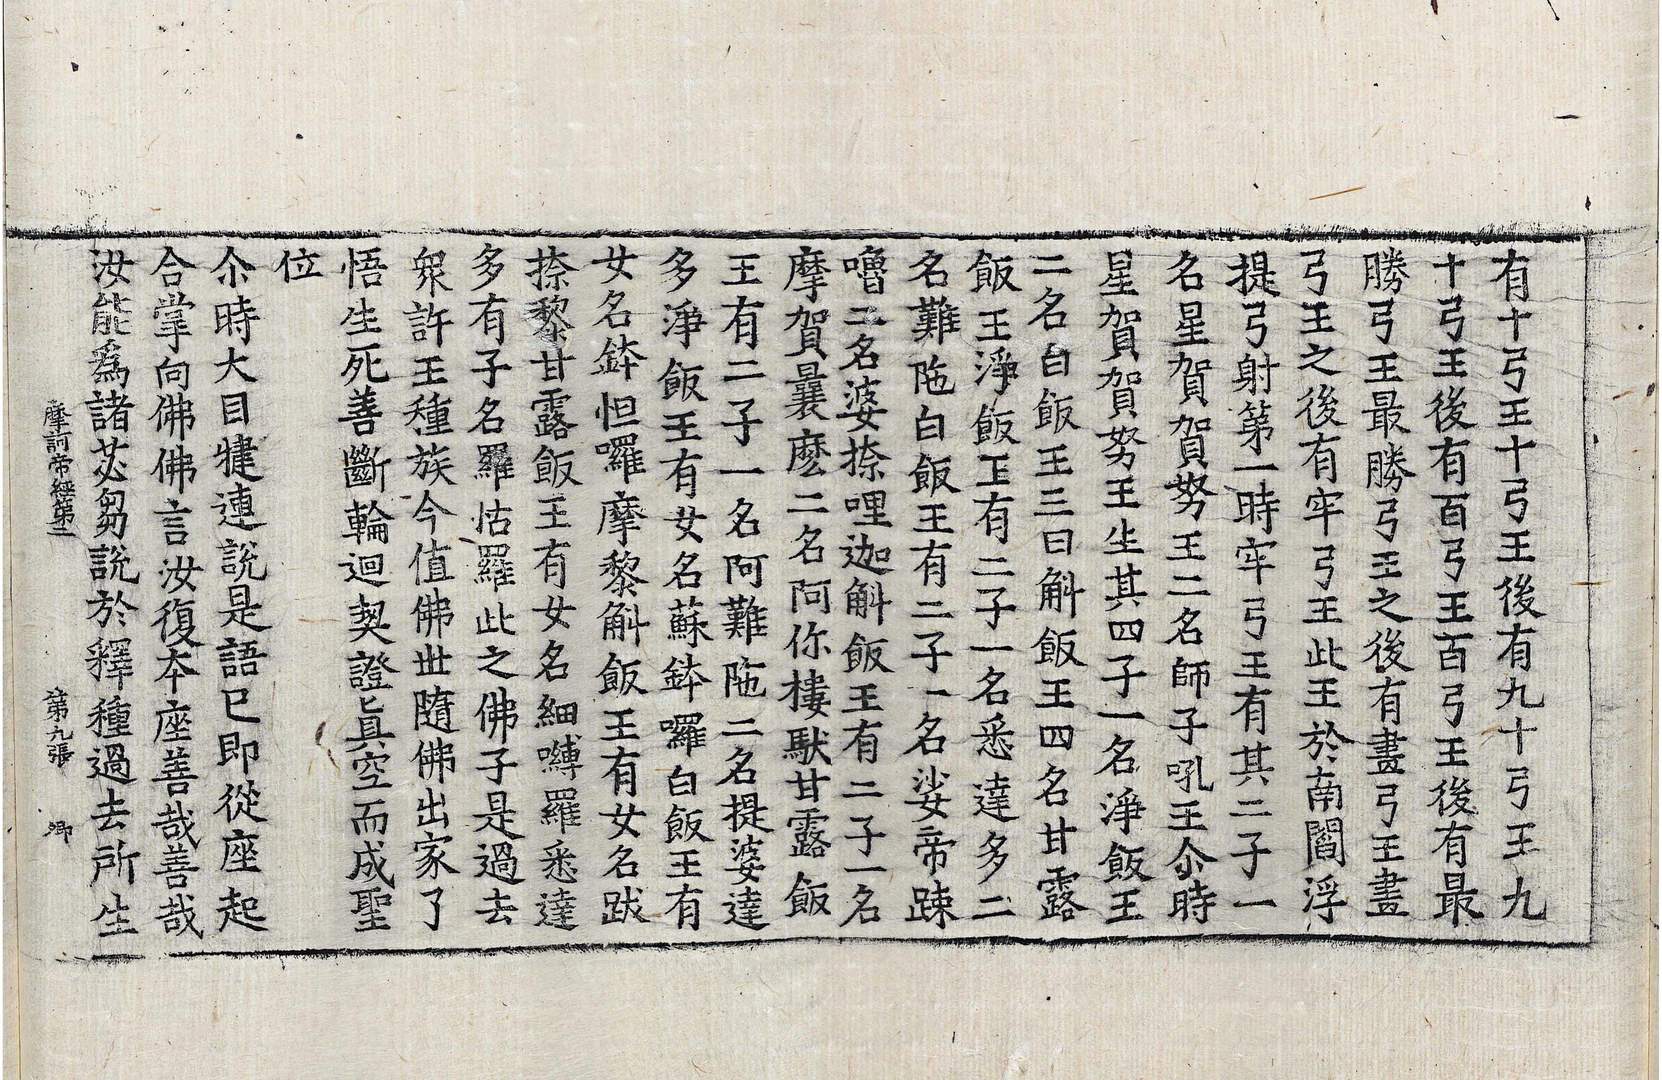 有十弓王十弓王後有九十弓王九
十弓王後有百弓王百弓王後有最
勝弓王最勝弓王之後有畫弓王畫
弓王之後有牢弓王此王於南閻浮
提弓射第一時牢弓王有其二子一
名星賀賀努王二名師子吼王尒時
星賀賀努王生其四子一名淨飯王
二名白飯王三曰斛飯王四名甘露
飯王淨飯王有二子一名悉達多二
名難陁白飯王有二子一名娑帝踈
嚕二名婆捺哩迦斛飯王有二子一名
摩賀曩麽二名阿你樓馱甘露飯
王有二子一名阿難陁二名提婆達
多淨飯王有女名蘇鉢囉白飯王有
女名鉢怛囉摩黎斛飯王有女名跋
捺黎甘露飯王有女名細嚩羅悉達
多有子名羅怙羅此之佛子是過去
衆許王種族今值佛世隨佛出家了
悟生死善斷輪迴契證真空而成聖
位
尒時大目犍連說是語已即從座起
合掌向佛佛言汝復本座善哉善哉
汝能爲諸苾芻說於釋種過去所生
摩訶帝經第二 第九張 卿